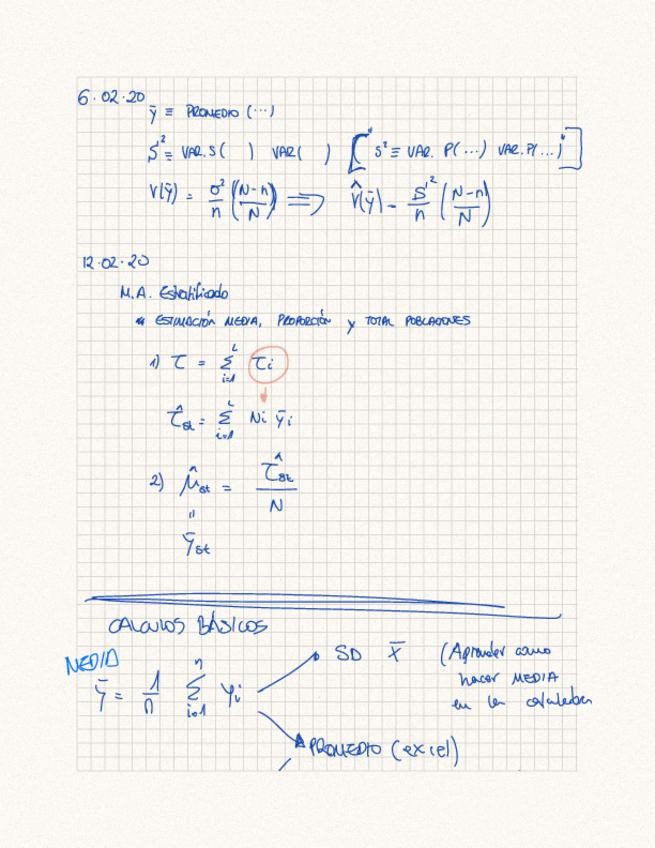 6.02.20
ȳ ≡ PROMEDIO (...)
S² ≡ VAR.S( ) VAR( ) [* s² ≡ VAR. P(...) VAR.P(...)*]
V(ȳ) = σ²/n (N-n/N) ⟹ V̂(ȳ) = S'²/n (N-n/N)
12.02.20
M.A. Estratificado
* ESTIMACIÓN MEDIA, PROPORCIÓN Y TOTAL POBLACIONES
1) τ = Σ_{i=1}^{L} τi
τ̂st = Σ_{i=1}^{L} Ni ȳi
2) μ̂st = τ̂st / N
"
ȳst
CALCULOS BÁSICOS
MEDIA
ȳ = 1/n Σ_{i=1}^{n} yi
SD x̄ (Aprender como
hacer MEDIA
en la calculadora
PROMEDIO (excel)